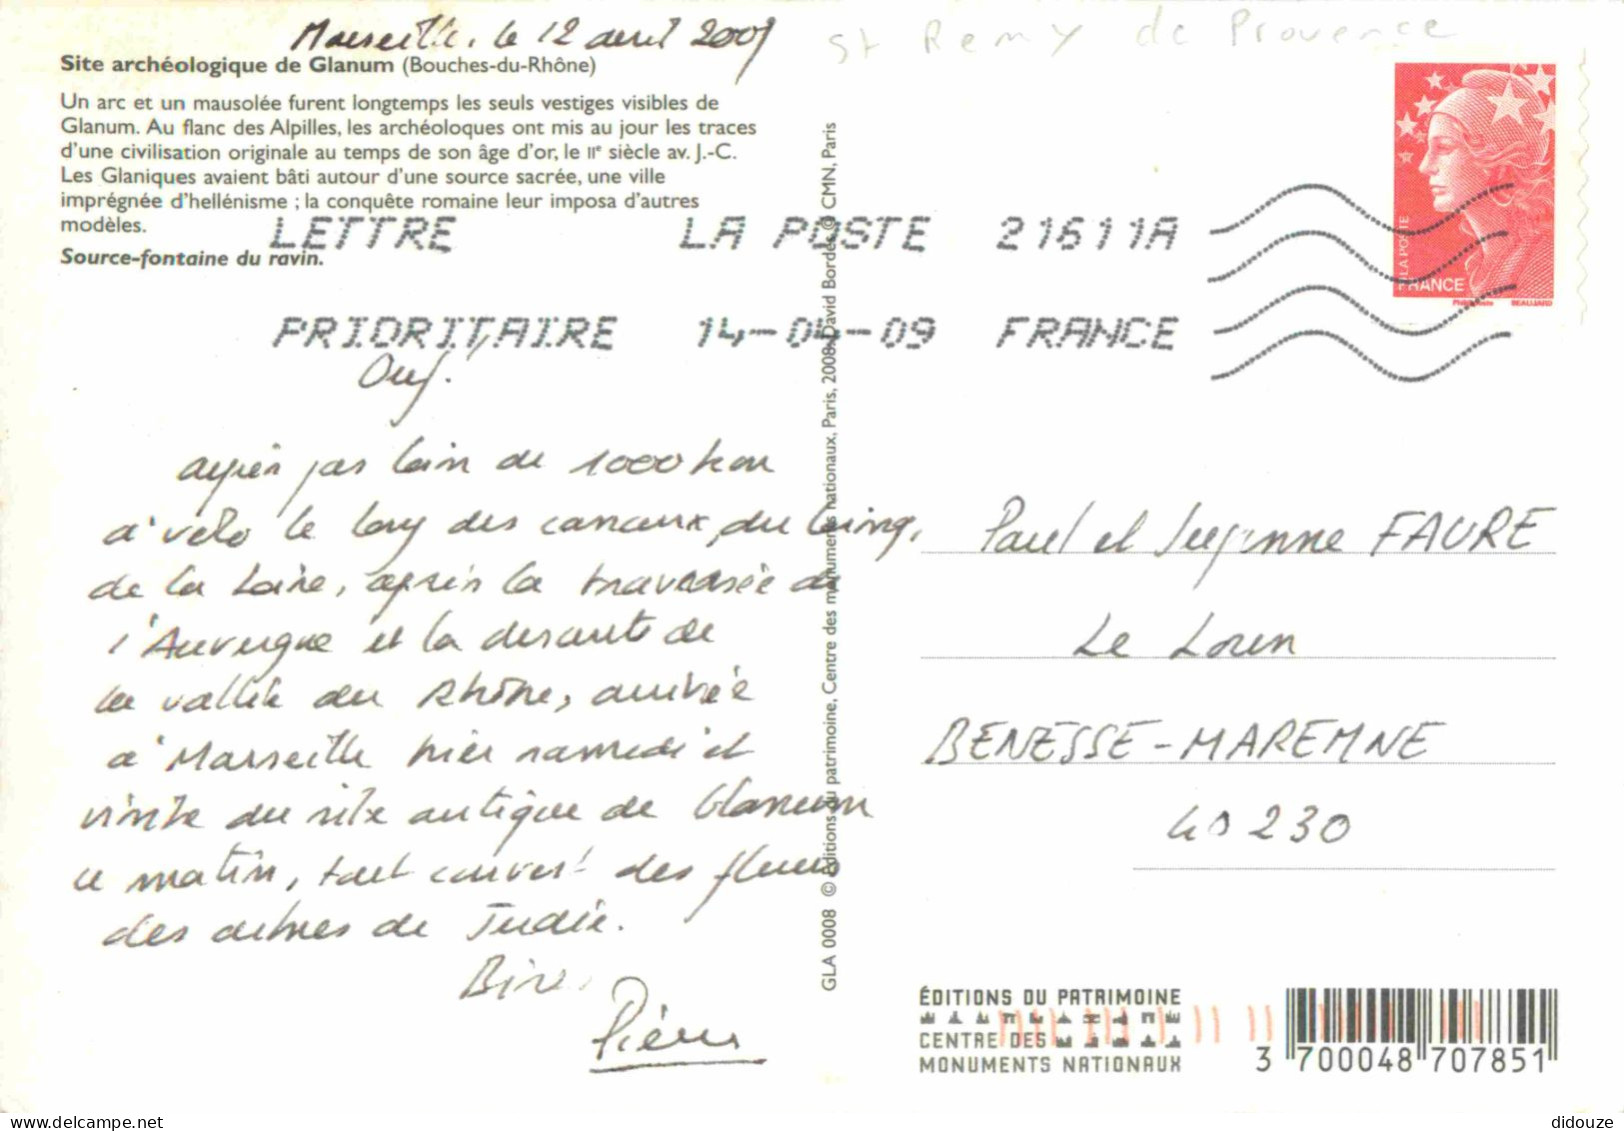 Marseille, le 12 avril 2009
St Remy de Provence
Site archéologique de Glanum (Bouches-du-Rhône)
Un arc et un mausolée furent longtemps les seuls vestiges visibles de
Glanum. Au flanc des Alpilles, les archéoloques ont mis au jour les traces
d'une civilisation originale au temps de son âge d'or, le IIe siècle av. J.-C.
Les Glaniques avaient bâti autour d'une source sacrée, une ville
imprégnée d'hellénisme ; la conquête romaine leur imposa d'autres
modèles.
Source-fontaine du ravin.
LETTRE LA POSTE 21611A
PRIORITAIRE 14-04-09 FRANCE
LA POSTE
FRANCE
BEAUJARD
Ouf!
après pas loin de 1000 km
à vélo le long des canaux du Loing,
de la Loire, après la traversée de
l'Auvergne et la descente de
la vallée du Rhône, arrivée
à Marseille hier samedi et
visite du site antique de Glanum
ce matin, tout couvert des fleurs
des arbres de Judée.
Bises
Pierre
GLA 0008 © Éditions du patrimoine, Centre des monuments nationaux, Paris, 2008. David Bordes © CMN, Paris
Paul et Suzanne FAURE
Le Loren
BENESSE-MAREMNE
40230
ÉDITIONS DU PATRIMOINE
CENTRE DES
MONUMENTS NATIONAUX
3 700048 707851
didouze